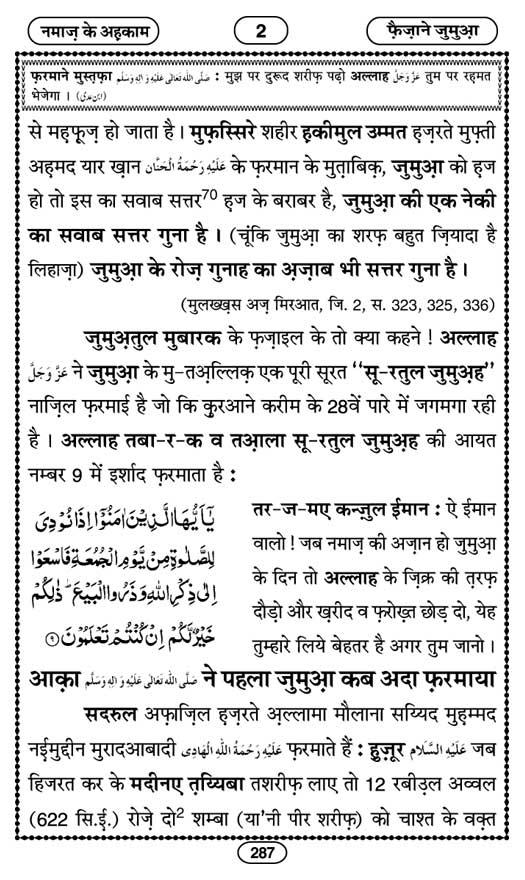 नमाज़ के अहकाम
2
फ़ैज़ाने जुमुआ़
फ़रमाने मुस्त़फ़ा صَلَّى اللهُ تَعَالٰى عَلَيْهِ وَاٰلِهٖ وَسَلَّم : मुझ पर दुरूद शरीफ़ पढ़ो अल्लाह عَزَّ وَجَلَّ तुम पर रह़मत
भेजेगा । (ابن عدی)
से मह़फ़ूज़ हो जाता है । मुफ़स्सिरे शहीर ह़कीमुल उम्मत ह़ज़रते मुफ़्ती
अह़मद यार ख़ान عَلَيْهِ رَحْمَةُ الْحَنَّان के फ़रमान के मुत़ाबिक़, जुमुआ़ को ह़ज
हो तो इस का सवाब सत्तर70 ह़ज के बराबर है, जुमुआ़ की एक नेकी
का सवाब सत्तर गुना है । (चूंकि जुमुआ़ का शरफ़ बहुत ज़ियादा है
लिहाज़ा) जुमुआ़ के रोज़ गुनाह का अ़ज़ाब भी सत्तर गुना है ।
(मुलख़्ख़स अज़ मिरआत, जि. 2, स. 323, 325, 336)
जुमुअ़तुल मुबारक के फ़ज़ाइल के तो क्या कहने ! अल्लाह
عَزَّ وَجَلَّ ने जुमुआ़ के मु-तअ़ल्लिक़ एक पूरी सूरत ‘‘सू-रतुल जुमुअ़ह’’
नाज़िल फ़रमाई है जो कि क़ुरआने करीम के 28वें पारे में जगमगा रही
है । अल्लाह तबा-र-क व तआ़ला सू-रतुल जुमुअ़ह की आयत
नम्बर 9 में इर्शाद फ़रमाता है :
يٰۤاَيُّهَا الَّذِيْنَ اٰمَنُوْۤا اِذَا نُوْدِیَ
لِلصَّلٰوةِ مِنْ يَّوْمِ الْجُمُعَةِ فَاسْعَوْا
اِلٰى ذِكْرِ اللّٰهِ وَذَرُوا الْبَيْعَ ؕ ذٰلِكُمْ
خَيْرٌ لَّكُمْ اِنْ كُنْتُمْ تَعْلَمُوْنَ ﴿۹﴾
तर-ज-मए कन्ज़ुल ईमान : ऐ ईमान
वालो ! जब नमाज़ की अज़ान हो जुमुआ़
के दिन तो अल्लाह के ज़िक्र की त़रफ़
दौड़ो और ख़रीद व फ़रोख़्त छोड़ दो, येह
तुम्हारे लिये बेहतर है अगर तुम जानो ।
आक़ा صَلَّى اللهُ تَعَالٰى عَلَيْهِ وَاٰلِهٖ وَسَلَّم ने पहला जुमुआ़ कब अदा फ़रमाया
सदरुल अफ़ाज़िल ह़ज़रते अ़ल्लामा मौलाना सय्यिद मुह़म्मद
नई़मुद्दीन मुरादआबादी عَلَيْهِ رَحْمَةُ اللهِ الْهَادِى फ़रमाते हैं : ह़ुज़ूर عَلَيْهِ السَّلَام जब
हिजरत कर के मदीनए त़य्यिबा तशरीफ़ लाए तो 12 रबीउ़ल अव्वल
(622 सि.ई़.) रोज़े दो2 शम्बा (या'नी पीर शरीफ़) को चाश्त के वक़्त
287